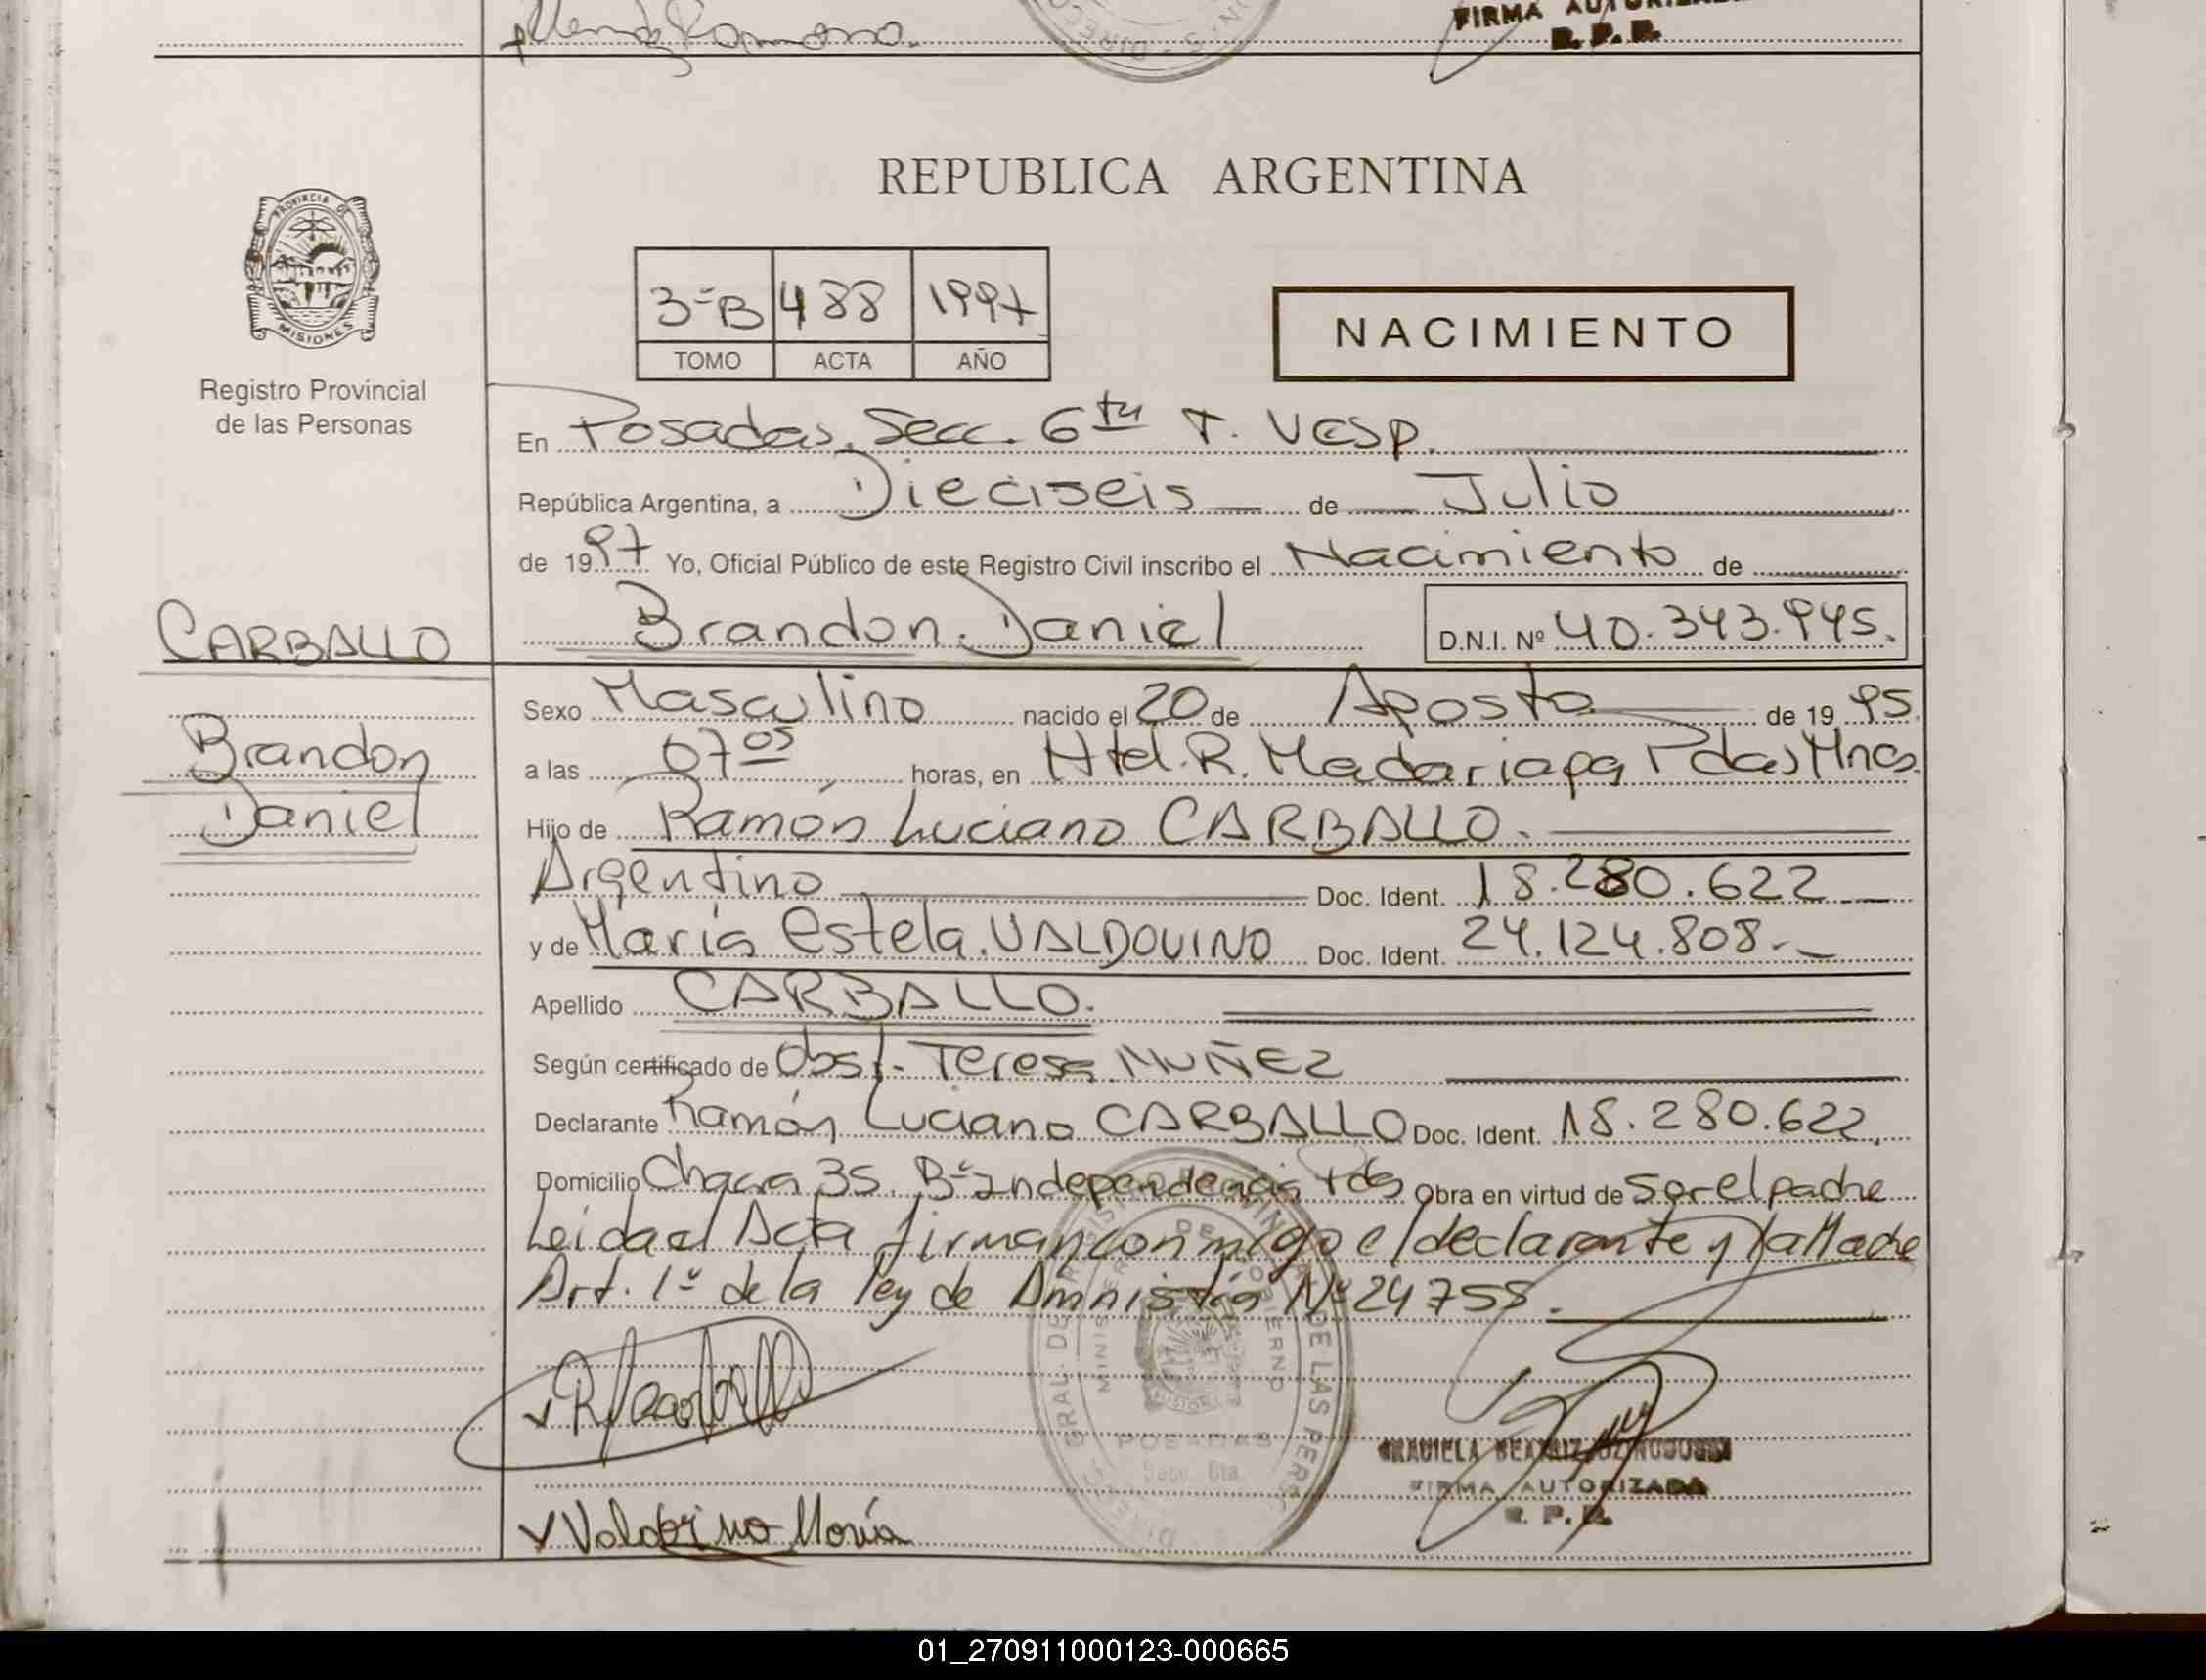 Romero.
FIRMA AUTORIZADA
R. P. P.
REPUBLICA ARGENTINA
PROVINCIA DE
MISIONES
Registro Provincial
de las Personas
3-B 488 1997
TOMO ACTA AÑO
NACIMIENTO
En Posadas. Secc. 6ta T. Vesp.
República Argentina, a Dieciseis de Julio
de 1997 Yo, Oficial Público de este Registro Civil inscribo el Nacimiento de
CARBALLO
Brandon Daniel D.N.I. Nº 40.343.945.
Sexo Masculino nacido el 20 de Agosto de 1995.
Brandon
a las 07 05 horas, en Htal. R. Madariaga Pdas Mnes.
Daniel
Hijo de Ramón Luciano CARBALLO.
Argentino Doc. Ident. 18.280.622
y de María Estela VALDOVINO Doc. Ident. 24.124.808.-
Apellido CARBALLO.
Según certificado de Obst. Teresa MUÑEZ
Declarante Ramón Luciano CARBALLO Doc. Ident. 18.280.622.
Domicilio Chacra 35. Bº Independencia Pdas Obra en virtud de Ser el padre
Leida el Acta firman conmigo el declarante y la Madre
Art. 1º de la ley de Amnistía Nº 24758.
R L Carballo
DIREC. GRAL. DE REGISTRO PROVINCIAL DE LAS PERSONAS
MINISTERIO DE GOBIERNO
POSADAS
Secc. 6ta.
GRACIELA BEATRIZ
FIRMA AUTORIZADA
R. P. P.
Valdovino María
01_270911000123-000665